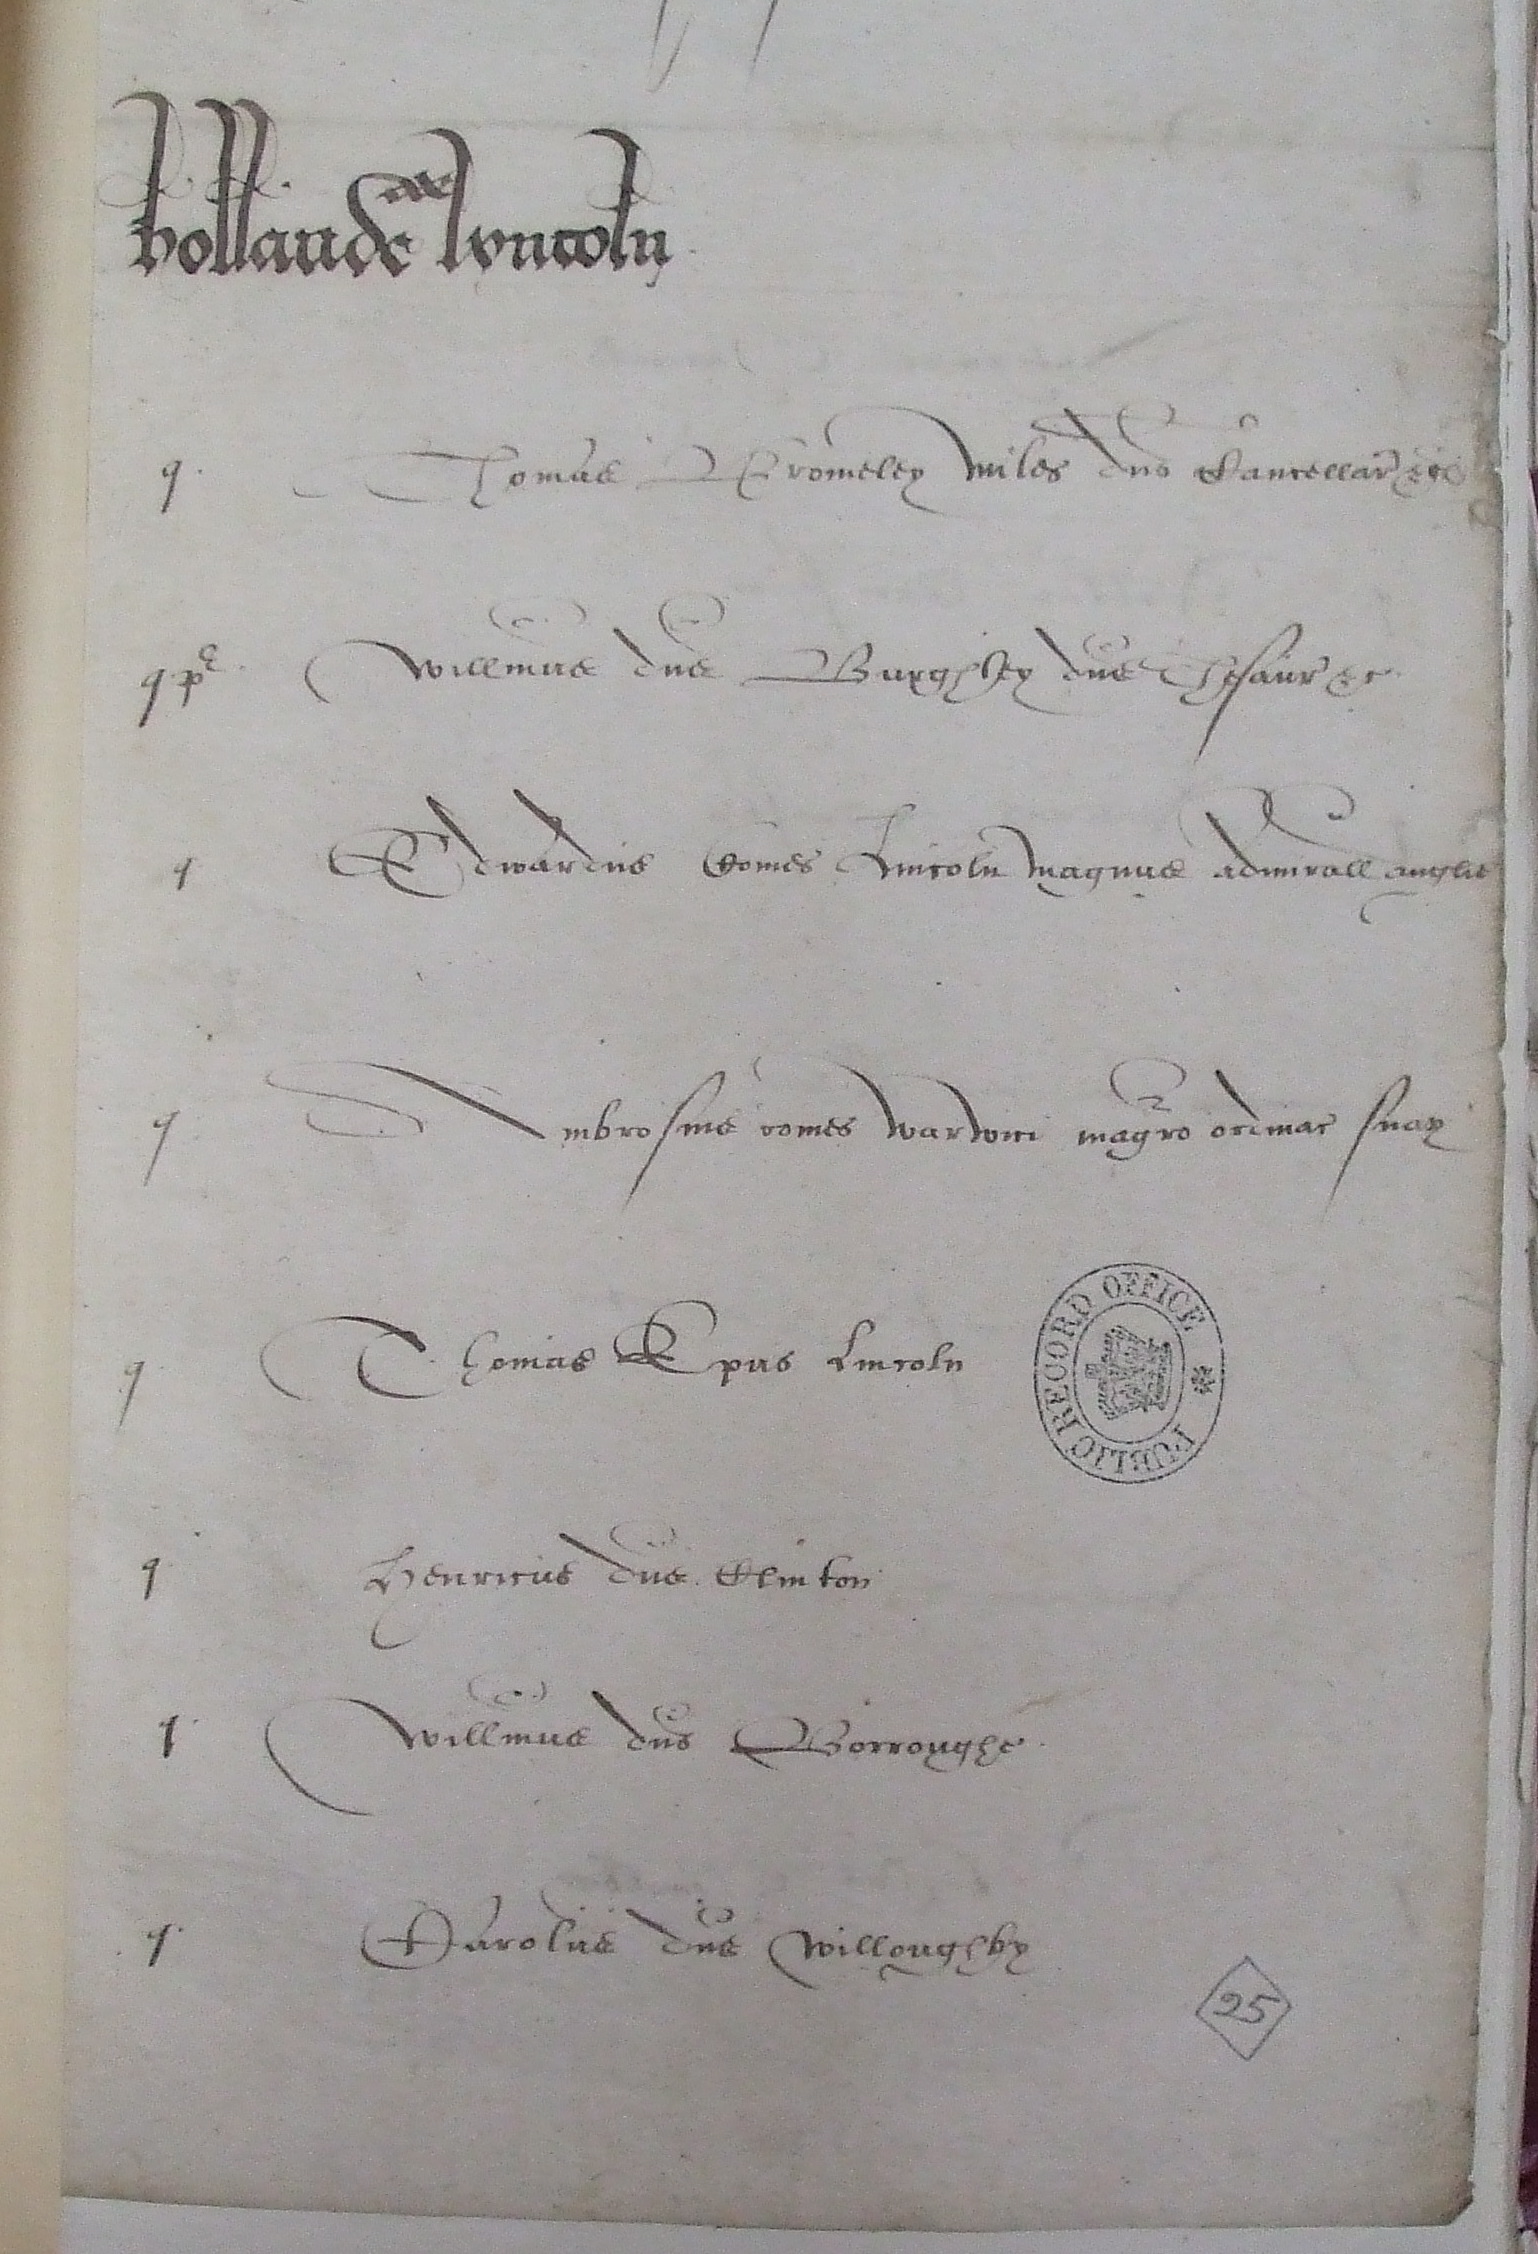 hollande lyncoln
q Thomas Bromeley miles dns Cancellar &c
q p Willmus dns Burghley dns Thesaur &c
q Edwardus Comes Lincoln magnus Admirall Anglie
q Ambrosius comes Warwici magro ordinac suar
q Thomas Epus Lincoln
PUBLIC RECORD OFFICE
q Henricus dns Clinton
q Willmus dns Borroughe
q Carolus dns Willoughby
25